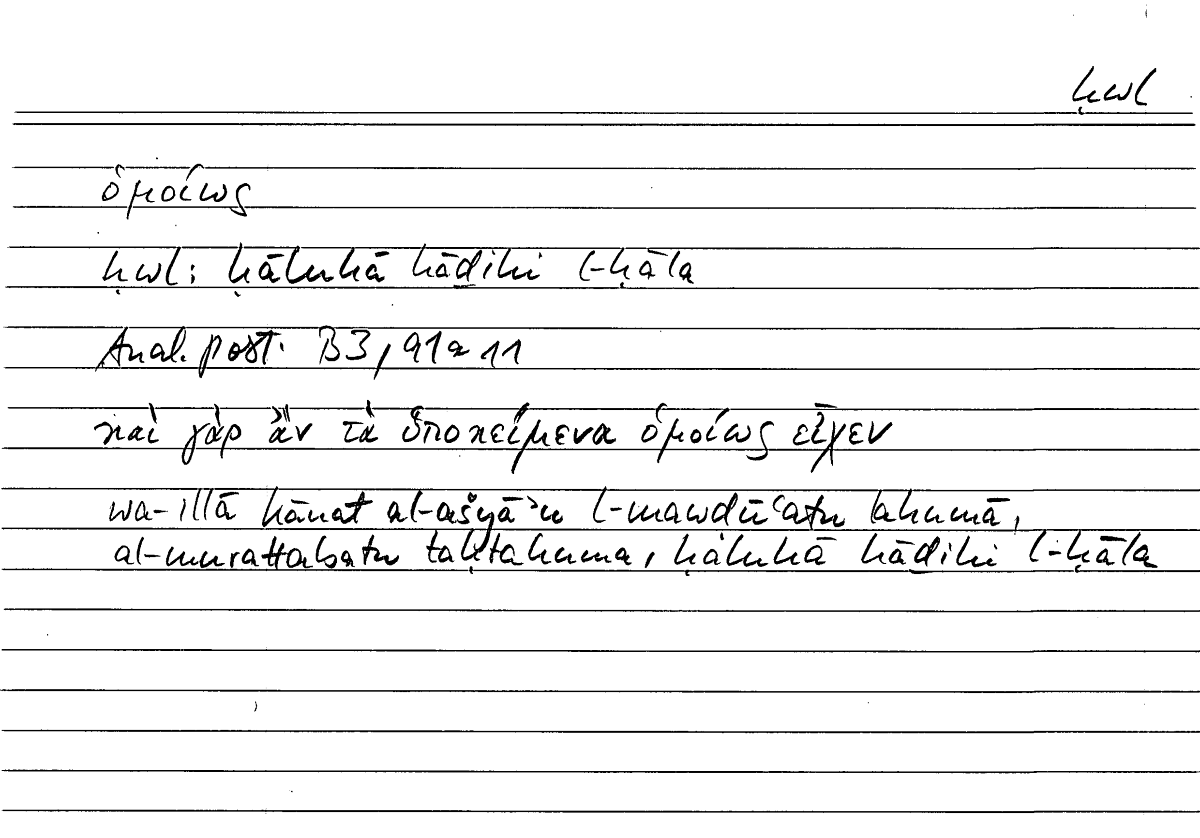 ḥwl
ὁμοίως
ḥwl: ḥāluhā hāḏihi l-ḥāla
Anal. post. B3, 91a11
καὶ γὰρ ἂν τὰ ὑποκείμενα ὁμοίως εἶχεν
wa-illā kānat al-ašyāʾu l-mawdūʿatu lahumā,
al-murattabatu taḥtahuma, ḥāluhā hāḏihi l-ḥāla